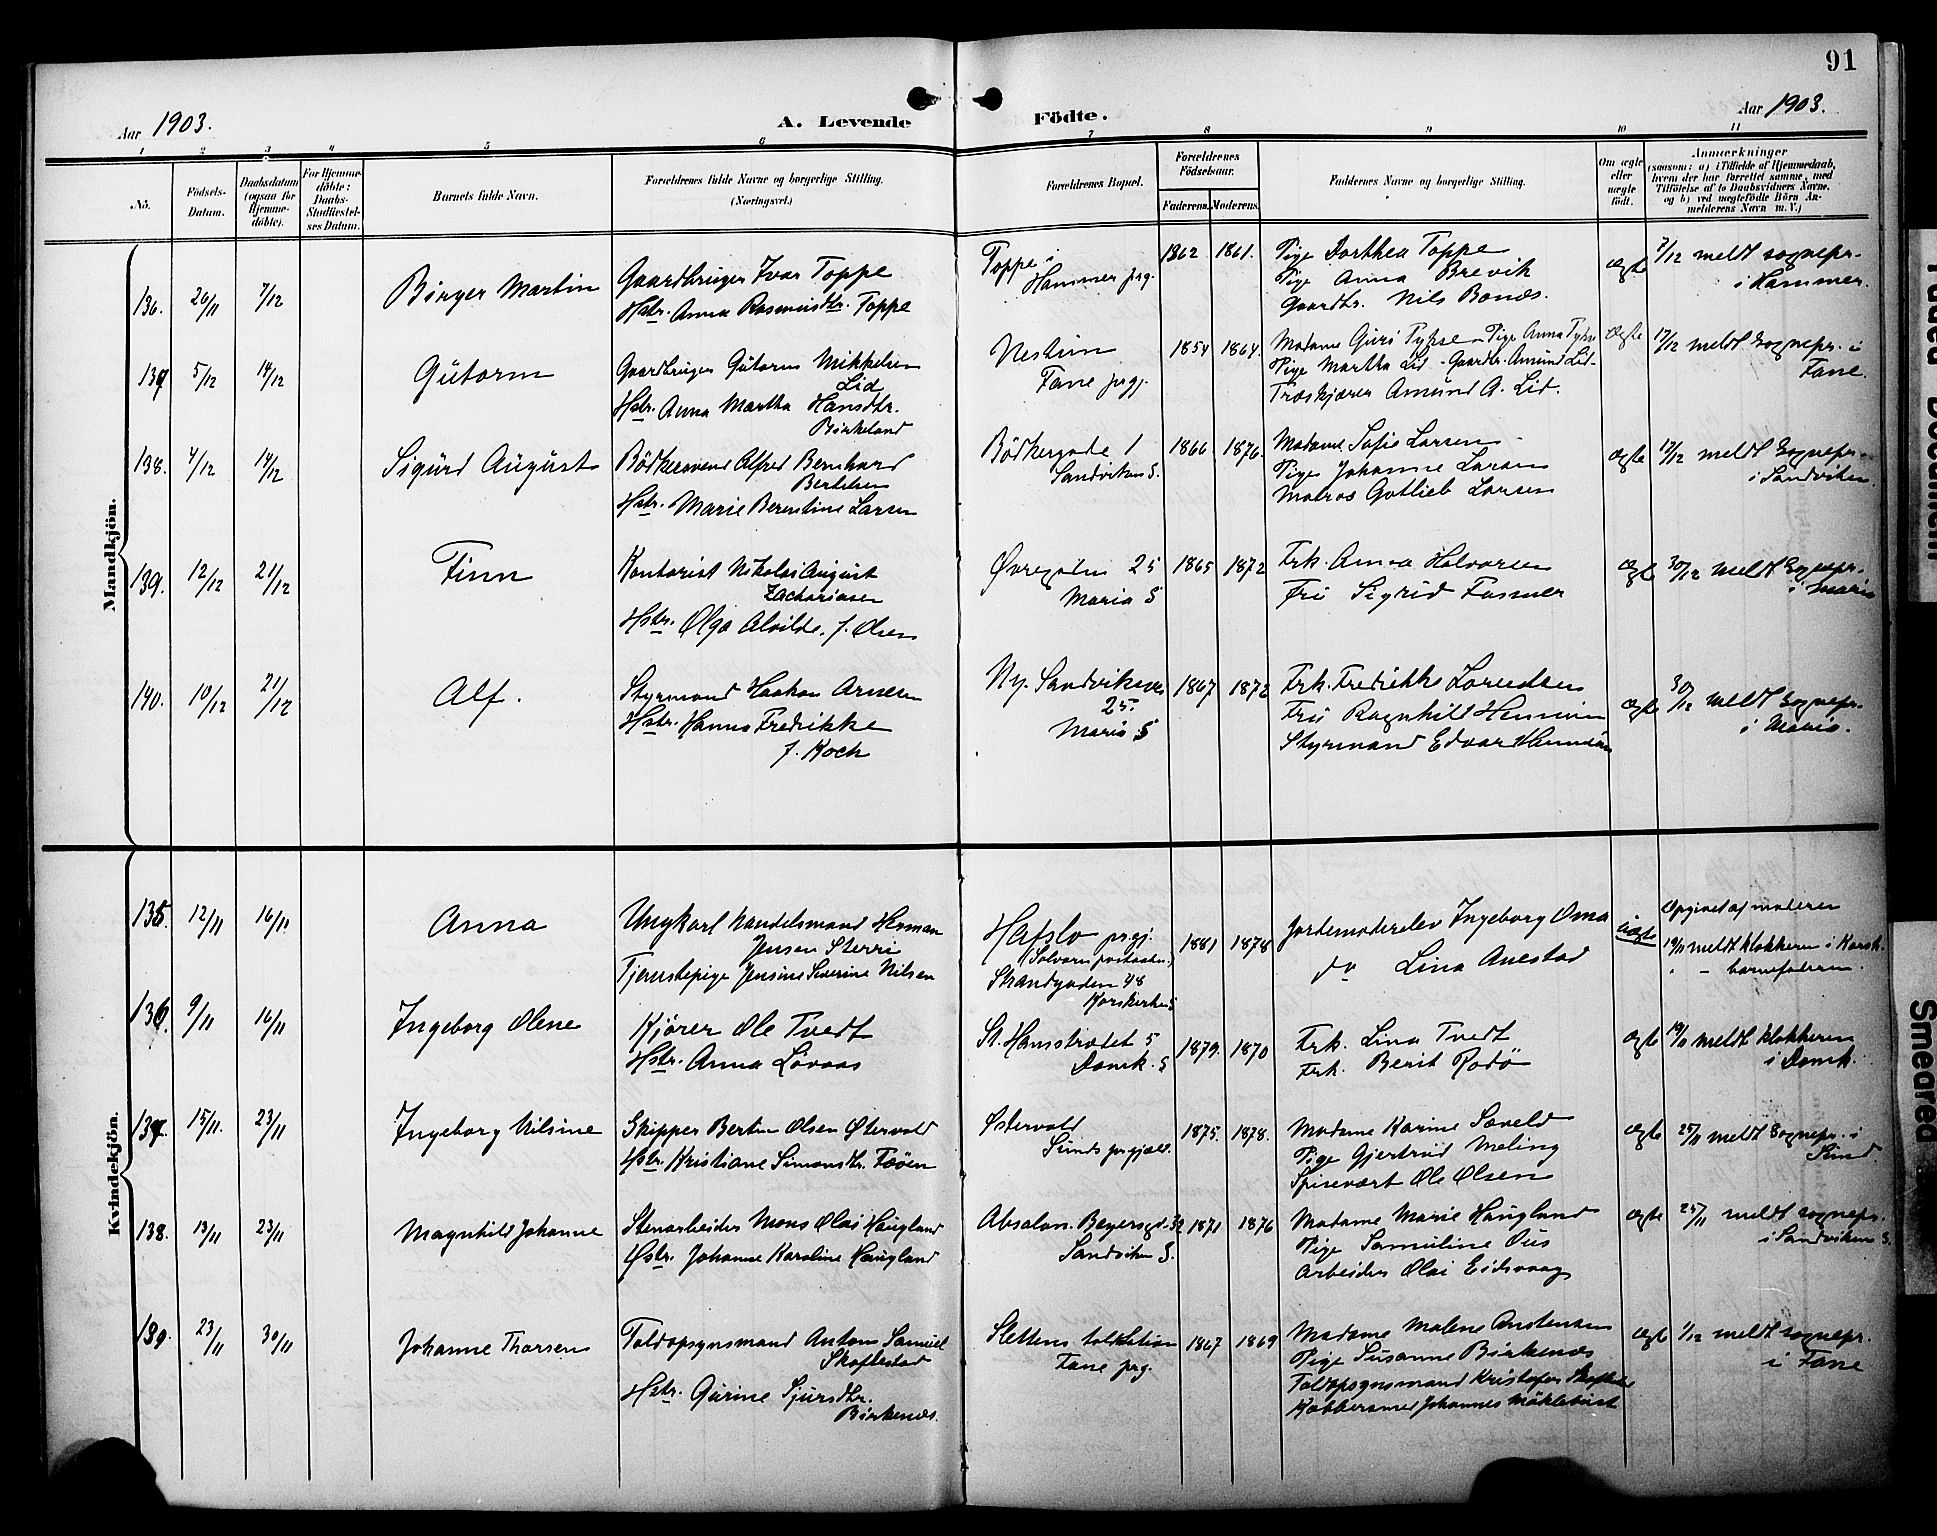 91
Aar 1903.
A. Levende Födte.
Aar 1903.
1 2 3 4 5 6 7 8 9 10 11
No.
Födsels-
Datum.
Daabsdatum
(ogsaa for
Hjemme-
döbte).
For Hjemme-
döbte:
Daabs-
Stadfæstel-
ses Datum.
Barnets fulde Navn.
Forældrenes fulde Navne og borgerlige Stilling.
(Næringsvei.)
Forældrenes Bopæl.
Forældrenes
Födselsaar.
Faderens. Moderens.
Faddernes Navne og borgerlige Stilling.
Om ægte
eller
uægte
födt.
Anmærkninger
(saasom: a) i Tilfælde af Hjemmedaab,
hvem der har forrettet samme, med
Tilföielse af to Daabsvidners Navne,
og b) ved uægtefödte Börn An-
melderens Navn m. V.)
Mandkjön.
136. 26/11 7/12 Birger Martin
Gaardbruger Ivar Toppe
Hstr. Anna Rasmusdtr. Toppe
Toppe i
Hammer prg.
1862 1861.
Pige Dorthea Toppe
Pige Anna Brevik
Gaardbr. Nils Bonæs.
ægte
7/12 meldt sognepr.
i Hammer.
137 5/12 14/12 Gutorm
Gaardbruger Gutorm Mikkelsen
Lid
Hstr. Anna Martha Hansdtr.
Birkeland
Nestun
Fane prgj.
1854 1864.
Madame Guri Tykse - Pige Anna Tykse
Pige Martha Lid - Gaardbr. Amund Lid -
Træskjærer Amund A. Lid.
ægte
17/12 meldt Sognepr. i
Fane.
138. 4/12 14/12 Sigurd August
Bödkersvend Alfred Bernhard
Bertelsen
Hstr. Marie Berentine Larsen
Bödkergade 1
Sandviken S.
1866 1876.
Madame Sofie Larsen
Pige Johanne Larsen
Matros Gotlieb Larsen
ægte
17/12 meldt Sognepr.
i Sandviken.
139. 12/12 21/12 Finn
Kontorist Nikolai August
Zachariasen
Hstr. Olga Alvilde. f. Olsen
Øvregaten 25
Maria S
1865 1872
Frk. Anna Halvorsen
Fru Sigrid Fasmer
ægte
30/12 meldt Sognepr.
i Maria
140. 10/12 21/12 Alf.
Styrmand Haakon Arnesen
Hstr. Hanna Fredrikke
f. Koch
Ny. Sandviksvei
25.
Maria S
1867 1872
Frk. Fredrikke Lorentsen
Fru Ragnhild
Styrmand Edvard
ægte
30/12 meldt Sognepr.
i Maria.
Kvindekjön.
135 12/11 16/11 Anna
Ungkarl Handelsmand Herman
Jensen Sterri
Tjenestepige Jensine Severine Nilsen
Hafslo prgj.
(Solvorn postaabn.)
Strandgaden 48
Korskirken S
1881 1878
Jordemoderelev Ingeborg Oma
do Lina Anestad
uægte
Opgivet af moderen
19/11 meldt klokkeren i Korsk.
" - barnefaderen.
136. 9/11 16/11 Ingeborg Olene
Kjörer Ole Tvedt
Hstr. Anna Lövaas
St. Hansstrædet 5
Domk. S
1879. 1870
Frk. Lina Tvedt
Frk. Berit Rodö
ægte
19/11 meldt klokkeren
i Domk.
137. 15/11. 23/11 Ingeborg Nilsine
Skipper Bertin Olsen Østervold
Hstr. Kristiane Simonsdtr. Tøøen
Østervold
Sunds prgjæld.
1875. 1878.
Madame Karine Sæveld
Pige Gjertrud Meling
Spisevært Ole Olsen
ægte
25/11 meldt Sognepr. i
Sund.
138. 13/11 23/11 Magnhild Johanne
Stenarbeider Mons Olai Haugland
Hstr. Johanne Karoline Haugland
Absalon. Beyersgd. 32
Sandviken S.
1871 1876
Madame Marie Haugland
Pige Samuline Øus
Arbeider Olai Eidsvaag
ægte
25/11 meldt sognepr.
i Sandviken S.
139. 23/11 30/11 Johanne Thorsen
Toldopsynsmand Anton Samuel
Skoftestad
Hstr. Gurine Sjursdtr.
Birkenæs.
Slettens toldstation
Fane prg.
1867 1869
Madame Malene Anstensen
Pige Susanne Birkenæs
Toldopsynsmand Kristofer
Johannes Möklebust
ægte
1/12 meldt sognepr.
i Fane
Faded Document
Smeared